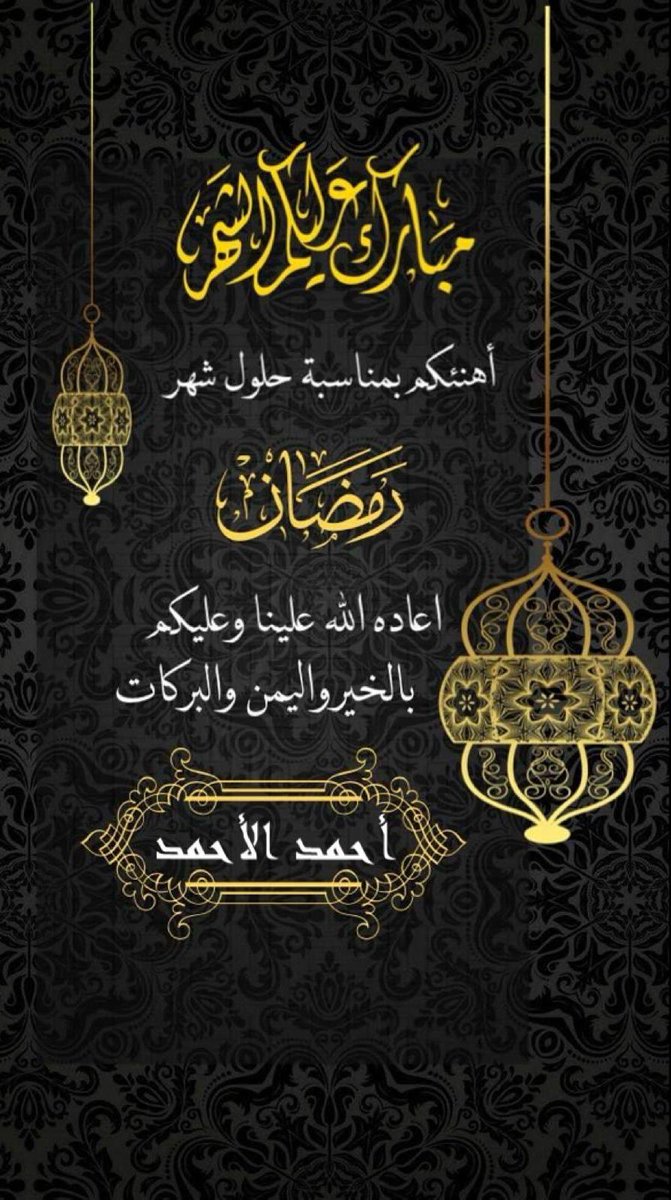 مبارك عليكم الشهر
أهنئكم بمناسبة حلول شهر
رَمَضَان
اعاده الله علينا وعليكم
بالخيرواليمن والبركات
أحمد الأحمد